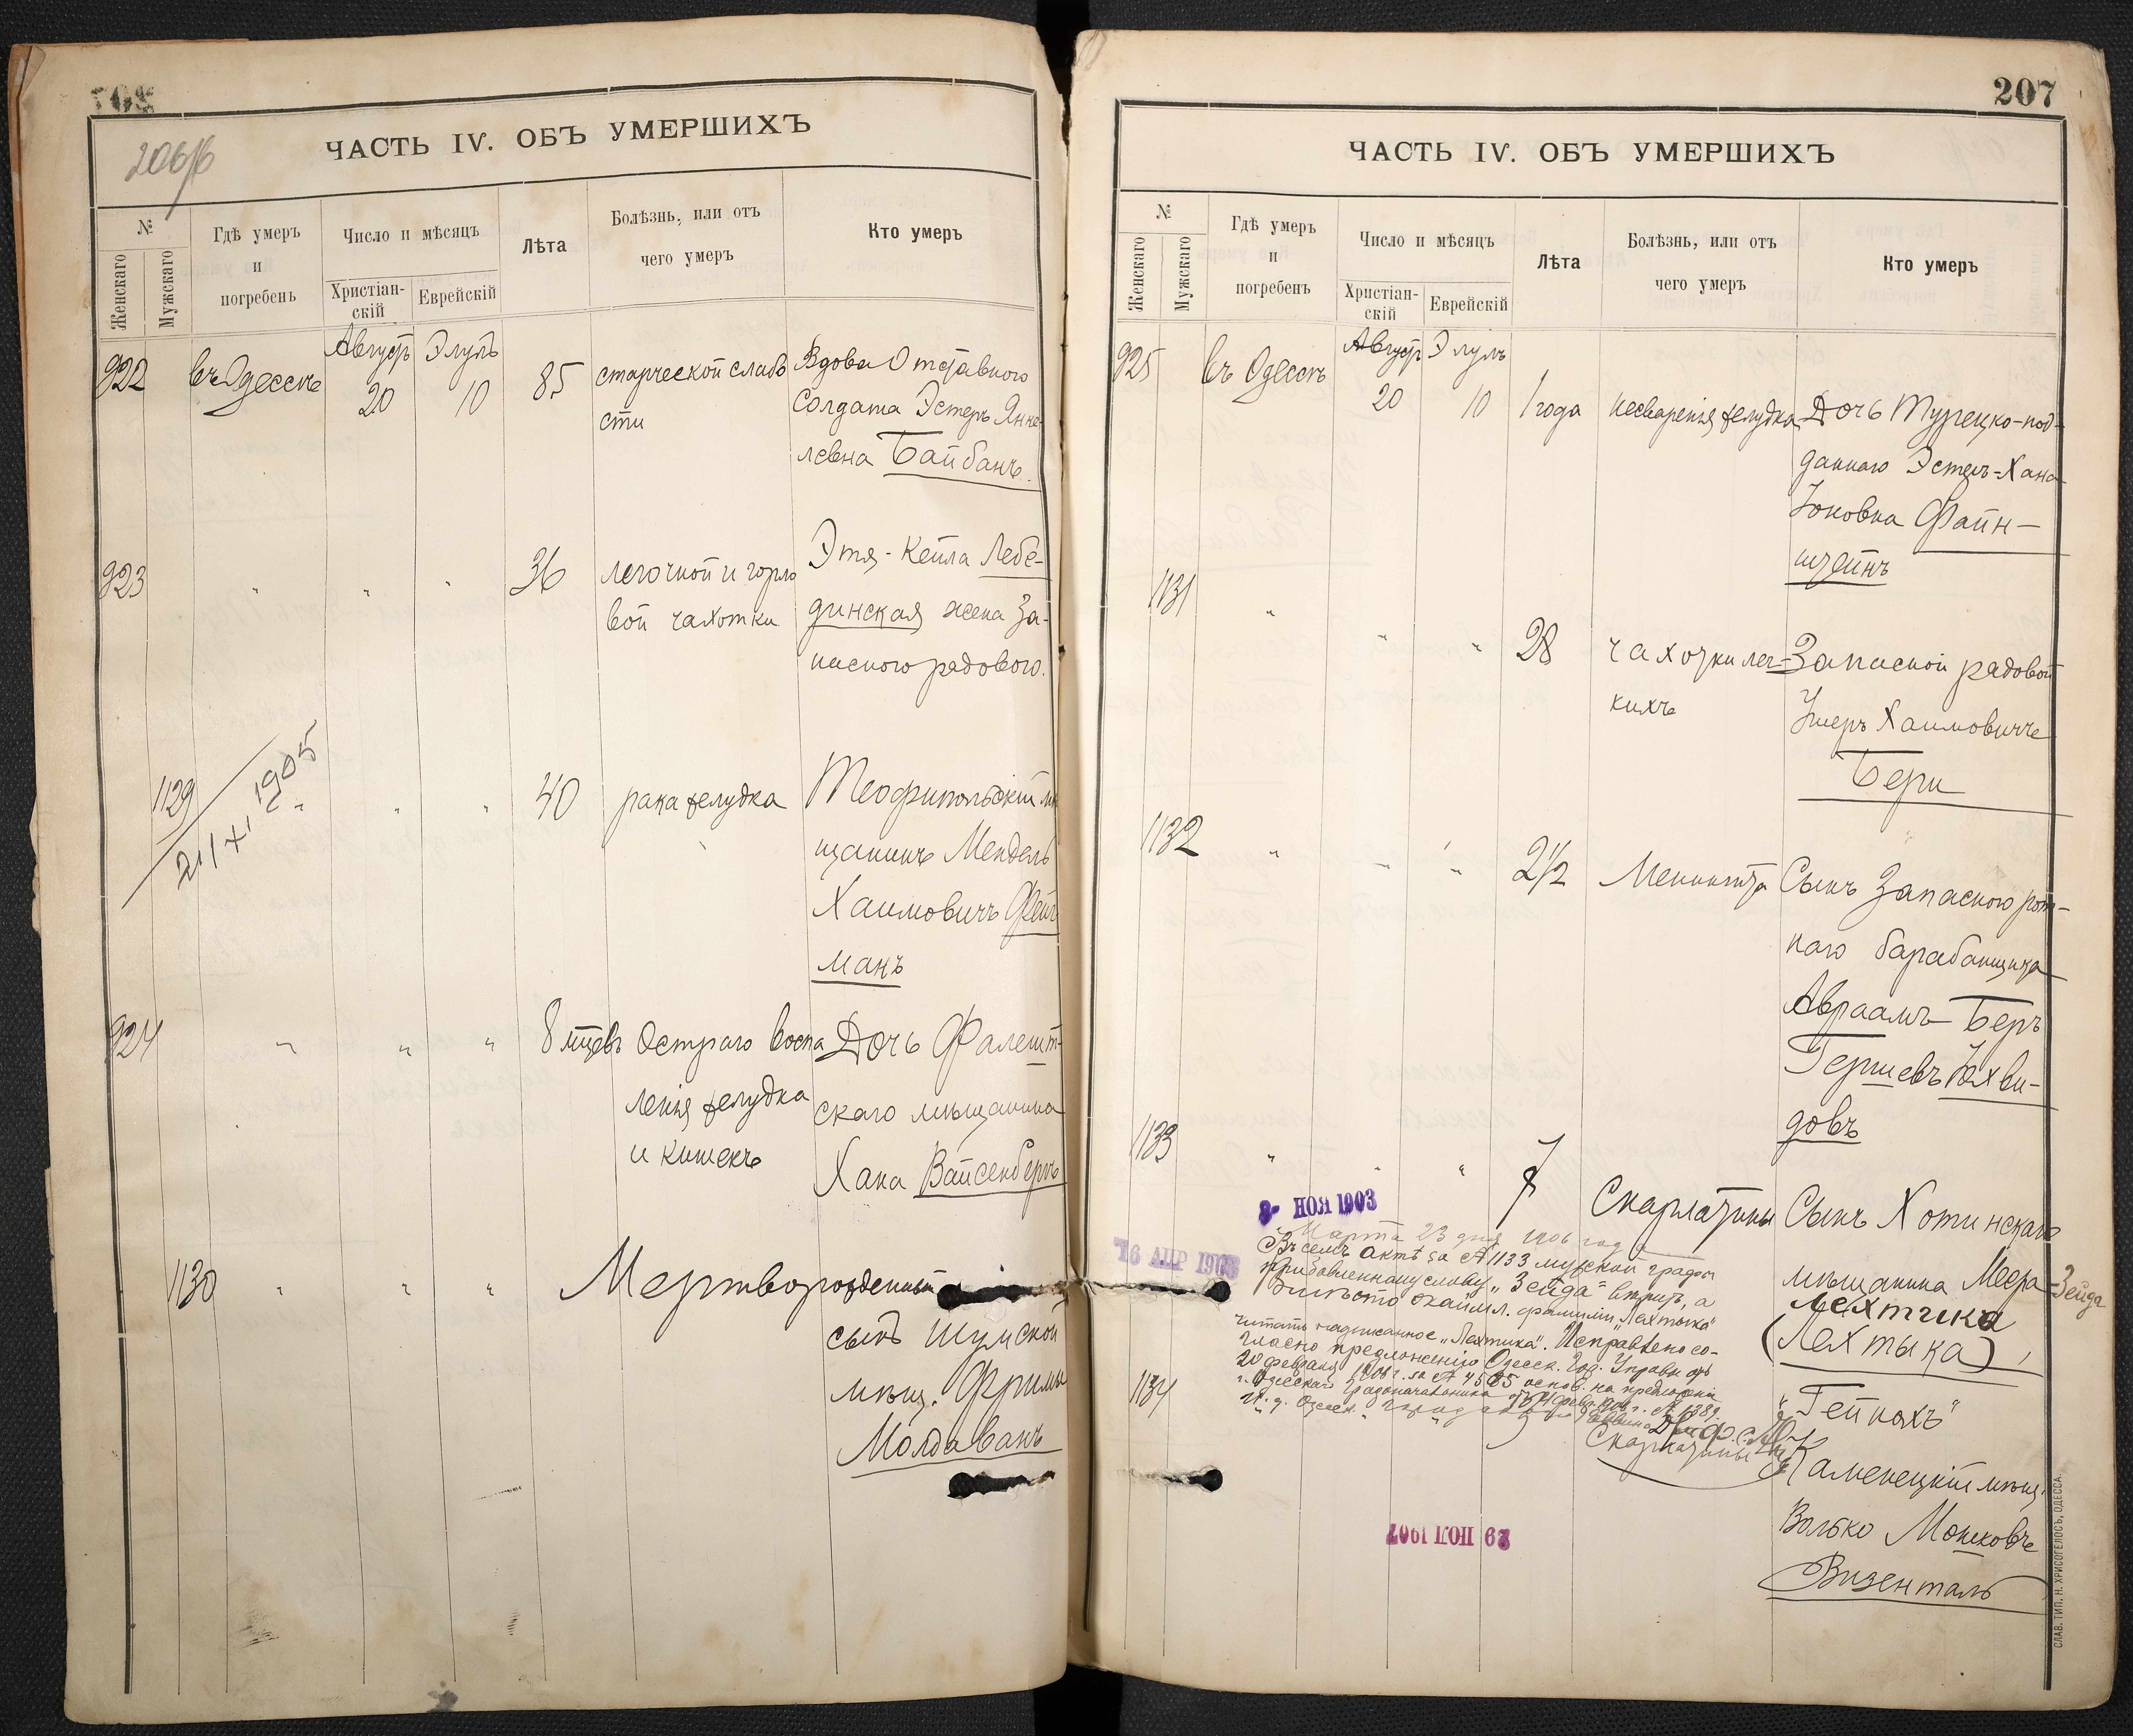 206/б
ЧАСТЬ IV. ОБЪ УМЕРШИХЪ
№
Женскаго
Мужскаго
Гдѣ умеръ
и
погребенъ
Число и мѣсяцъ
Христіан-
скій
Еврейскій
Лѣта
Болѣзнь, или отъ
чего умеръ
Кто умеръ
922
въ Одессѣ
Августъ
20
Элулъ
10
85
старческой слабо
сти
Вдова Отставного
Солдата Эстеръ Янке-
левна Байбанъ.
923
"
"
"
36
легочной и горло
вой чахотки
Этя-Кейла Лебе-
динская жена За-
пасного рядового.
1129
21/XI 1905
"
"
"
40
рака желудка
Теофипольскій мѣ
щанинъ Мендель
Хаимовичъ Фель
манъ
924
"
"
"
8 мцевъ
Остраго воспа
ленія желудка
и кишекъ
Дочь Фалешт-
скаго мѣщанина
Хана Вайсенбергъ
1130
"
"
"
Мертворожденный
сынъ Шумской
мѣщ. Фримы
Молдаванъ
207
ЧАСТЬ IV. ОБЪ УМЕРШИХЪ
№
Женскаго
Мужскаго
Гдѣ умеръ
и
погребенъ
Число и мѣсяцъ
Христіан-
скій
Еврейскій
Лѣта
Болѣзнь, или отъ
чего умеръ
Кто умеръ
925
въ Одессѣ
Августъ
20
Элулъ
10
1 года
несваренія желудка
Дочь Турецко-под-
даннаго Эстеръ-Хана
Іоновна Файн-
штейнъ
1131
"
"
"
28
чахотки лег-
кихъ
Запасной рядовой
Ушеръ Хаимовичъ
Бери
1132
"
"
"
2½
Менингита
Сынъ Запасного рот-
наго барабанщика
Авраамъ-Беръ
Гершевъ Юхви-
довъ
1133
"
"
"
7
Скарлатины
Сынъ Хотинскаго
мѣщанина Меера-Зейда
Лехтчика
(Лехтыка),
"Гейнахъ"
8- НОЯ 1903
16 АПР 1903
Марта 23 дня 1906 года
Въ семъ актѣ за № 1133 мужской графы
прибавленному слову "Зейда" вѣрить, а
вмѣсто окаймл. фамиліи "Лехтыка"
читать надписанное "Лехтчика". Исправлено со-
гласно предложенію Одесск. Гор. Управы отъ
20 февраля 1906 г. за № 4585 основ. на предложеніи
г. Одесскаго Градоначальника отъ 14 февр. 1906 г. № 1389.
И. д. Одесск. город
1134
Скарлатины
Каменецкій мѣщ.
Волько Мошковъ
Визенталь
29 НОЯ 1907
СЛАВ. ТИП. Н. ХРИСОГЕЛОСЪ, ОДЕССА.